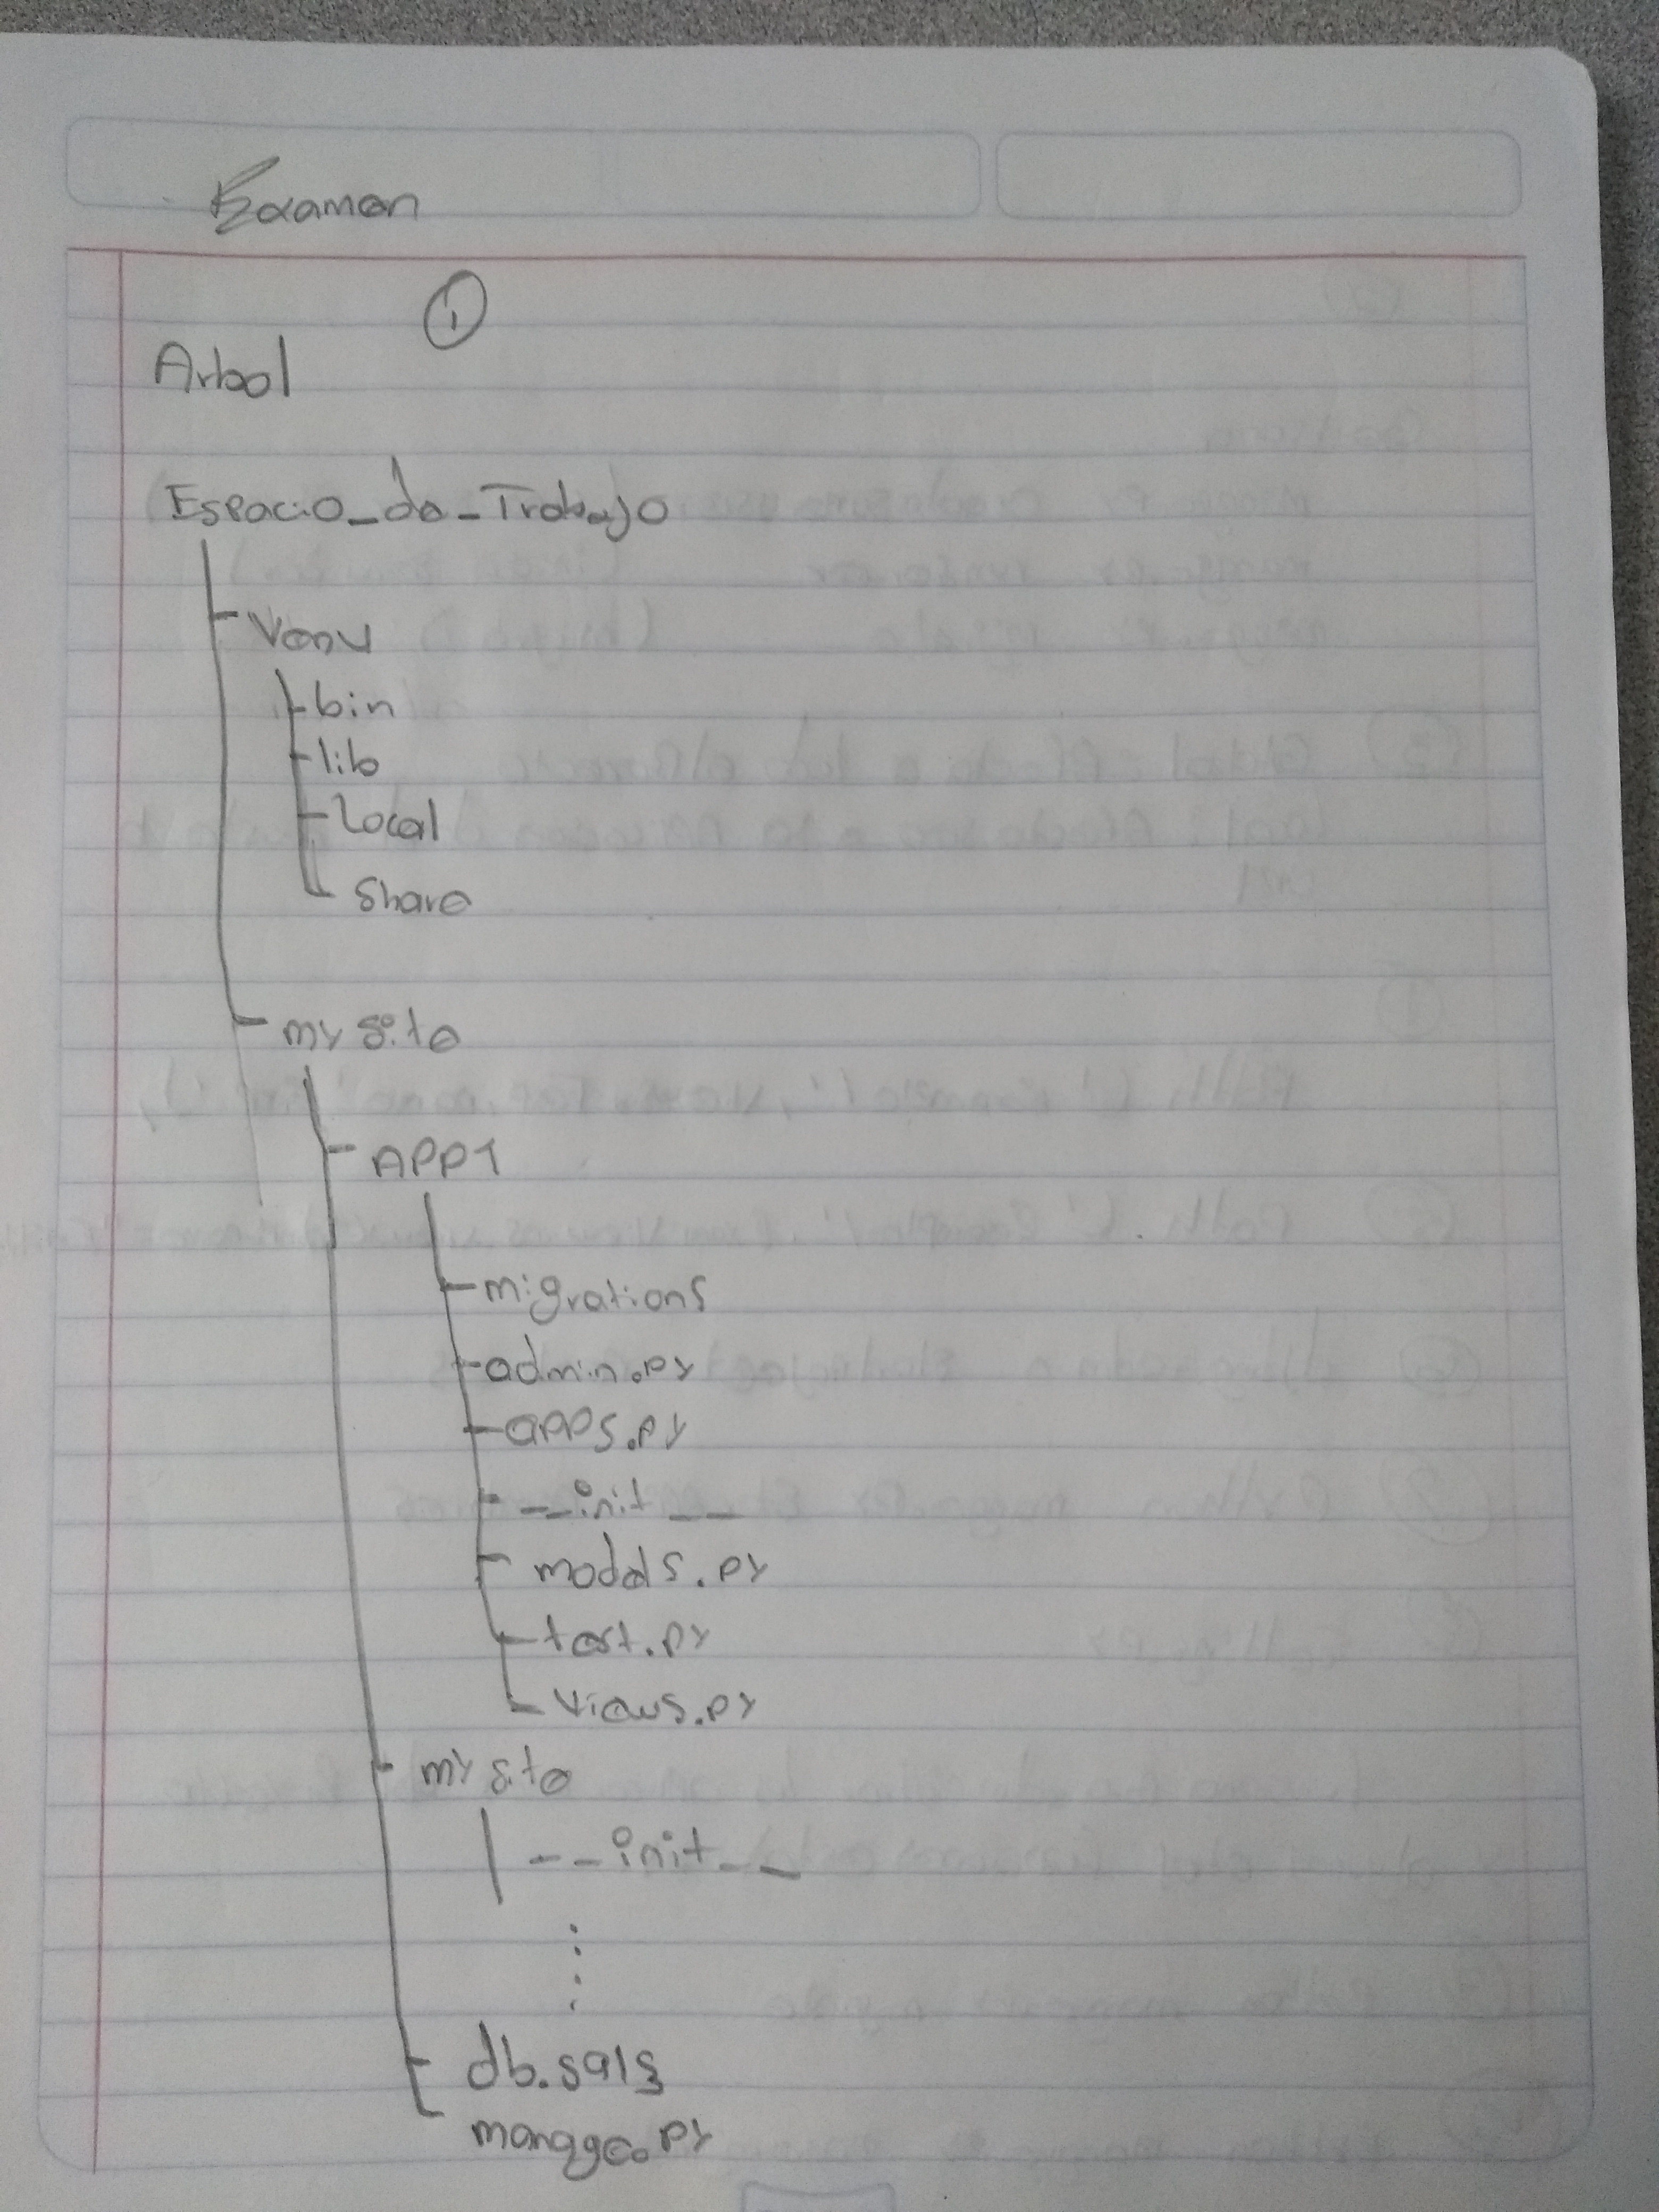 Examen
1
Arbol
Espacio_de_Trabajo
Venv
bin
lib
Local
Share
my site
APP1
migrations
admin.py
apps.py
__init__
models.py
test.py
views.py
my site
__init__
db.sql3
manage.py